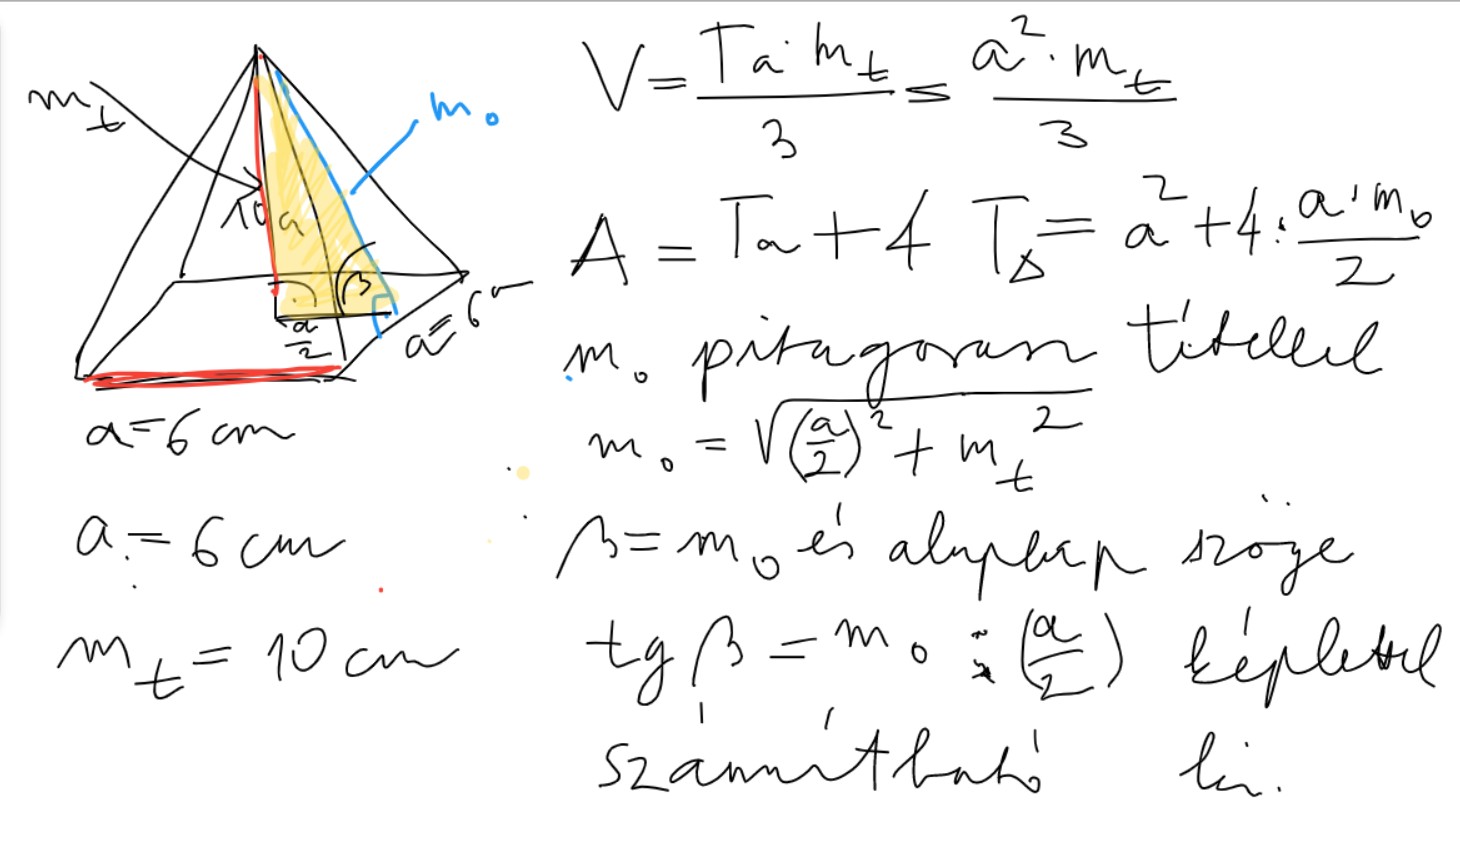 m_t
m_o
10
a
β
a/2
a = 6
a = 6 cm
a = 6 cm
m_t = 10 cm
V = (Ta · m_t)/3 = (a² · m_t)/3
A = Ta + 4 T_Δ = a² + 4 · (a · m_o)/2
m_o pitagorasz tétellel
m_o = √((a/2)² + m_t²)
β = m_o és alaplap szöge
tg β = m_o : (a/2) képlettel
számítható ki.